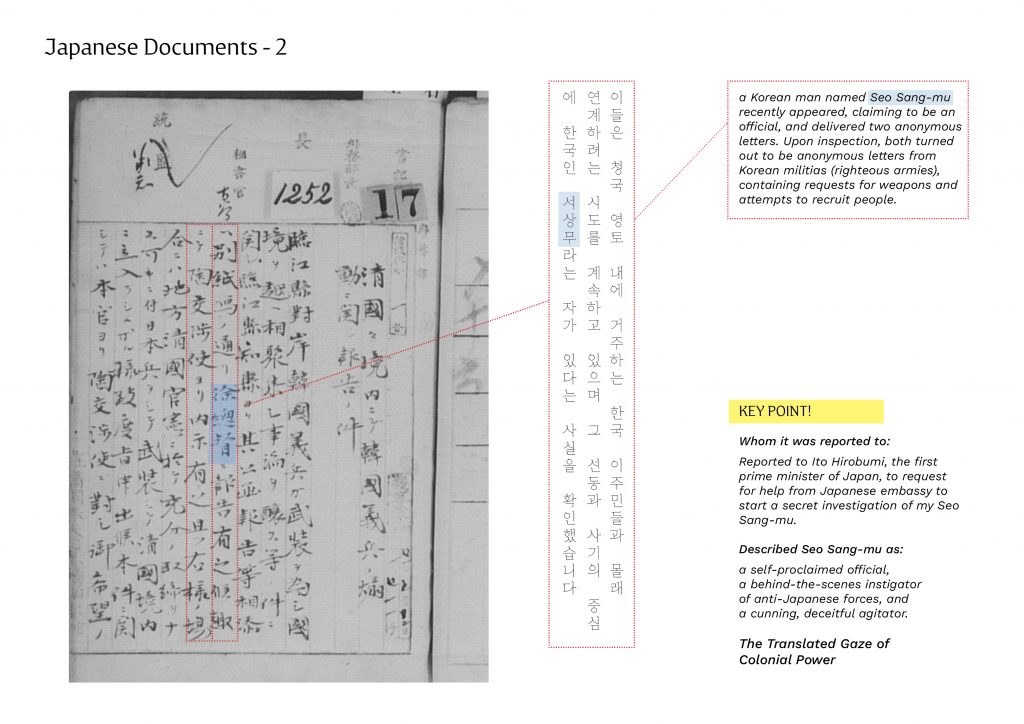 Japanese Documents - 2
統監
秘書官
長
外務部長
1252
17
清國々境內ニテ韓國義兵ノ煽
動ニ関シ報告ノ件
臨江縣對岸韓國義兵ガ武裝ヲ為シ國
境ヲ越ヘ相聚 シ事端ヲ醸ス等ノ件ニ
関シ臨江縣知縣ヨリ其 報告等相添
ヘ別紙寫ノ通リ徐總督ニ報告有之候趣
ニテ陶交渉使ヨリ内示有之且ツ右様ノ場
合ニハ地方清國官憲ニ於テ充分ノ取締ヲナ
ス可キニ付日本兵ヲシテ武装シテ清國境内
ニ立入ラシメ 様致度旨申出候本件ニ関
シテハ本官ヨリ陶交渉使ニ對シ御希望ノ
이들은 청국 영토 내에 거주하는 한국 이주민들과 몰래
연계하려는 시도를 계속하고 있으며 그 선동과 사기의 중심
에 한국인 서상무라는 자가 있다는 사실을 확인했습니다
a Korean man named Seo Sang-mu
recently appeared, claiming to be an
official, and delivered two anonymous
letters. Upon inspection, both turned
out to be anonymous letters from
Korean militias (righteous armies),
containing requests for weapons and
attempts to recruit people.
KEY POINT!
Whom it was reported to:
Reported to Ito Hirobumi, the first
prime minister of Japan, to request
for help from Japanese embassy to
start a secret investigation of my Seo
Sang-mu.
Described Seo Sang-mu as:
a self-proclaimed official,
a behind-the-scenes instigator
of anti-Japanese forces, and
a cunning, deceitful agitator.
The Translated Gaze of
Colonial Power